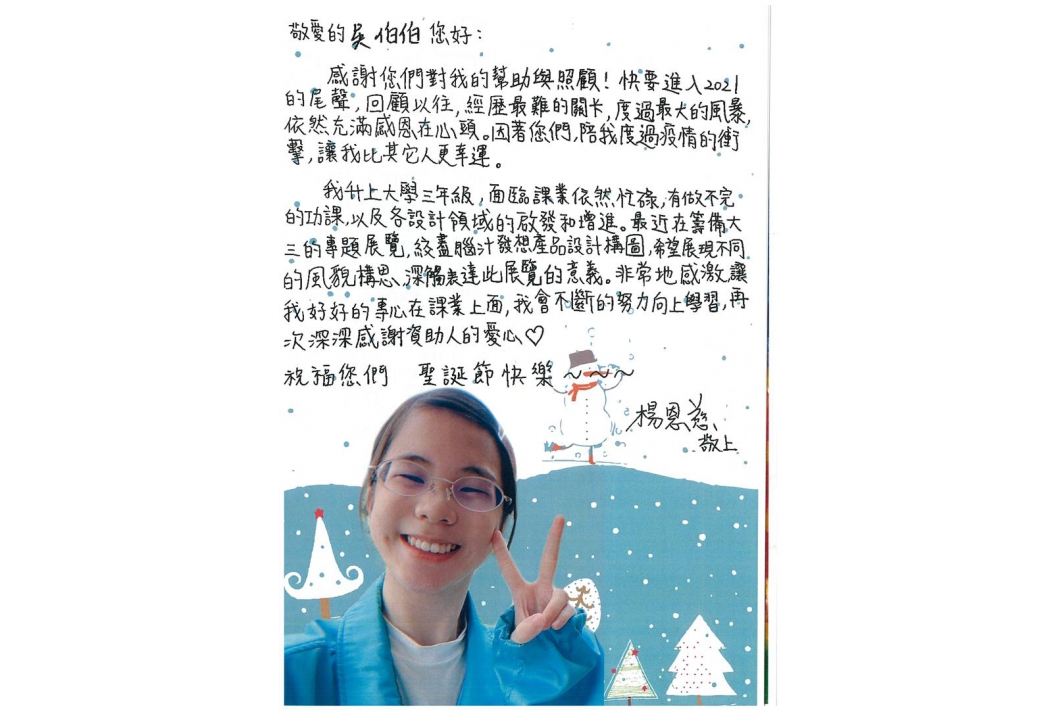 敬愛的吳伯伯您好：
感謝您們對我的幫助與照顧！快要進入2021
的尾聲，回顧以往，經歷最難的關卡，度過最大的風暴，
依然充滿感恩在心頭。因著您們，陪我度過疫情的衝
擊，讓我比其它人更幸運。
我升上大學三年級，面臨課業依然忙碌，有做不完
的功課，以及各設計領域的啟發和增進。最近在籌備大
三的專題展覽，絞盡腦汁發想產品設計構圖，希望展現不同
的風貌構思、深觸表達此展覽的意義。非常地感激，讓
我好好的專心在課業上面，我會不斷的努力向上學習，再
次深深感謝資助人的愛心♡
祝福您們 聖誕節快樂～～～
楊恩慈
敬上